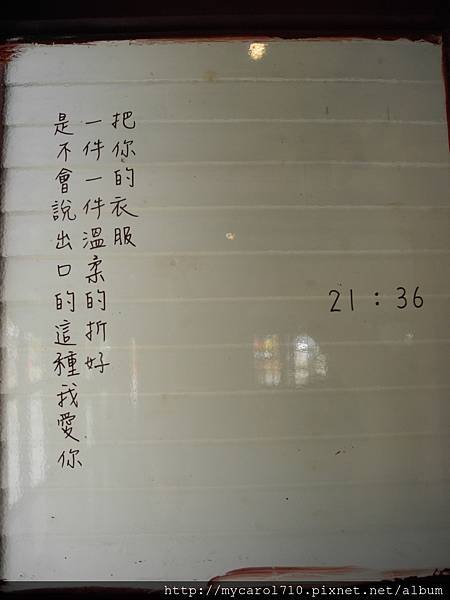 把你的衣服
一件一件溫柔的折好
是不會說出口的這種我愛你
21：36
http://mycarol710.pixnet.net/album